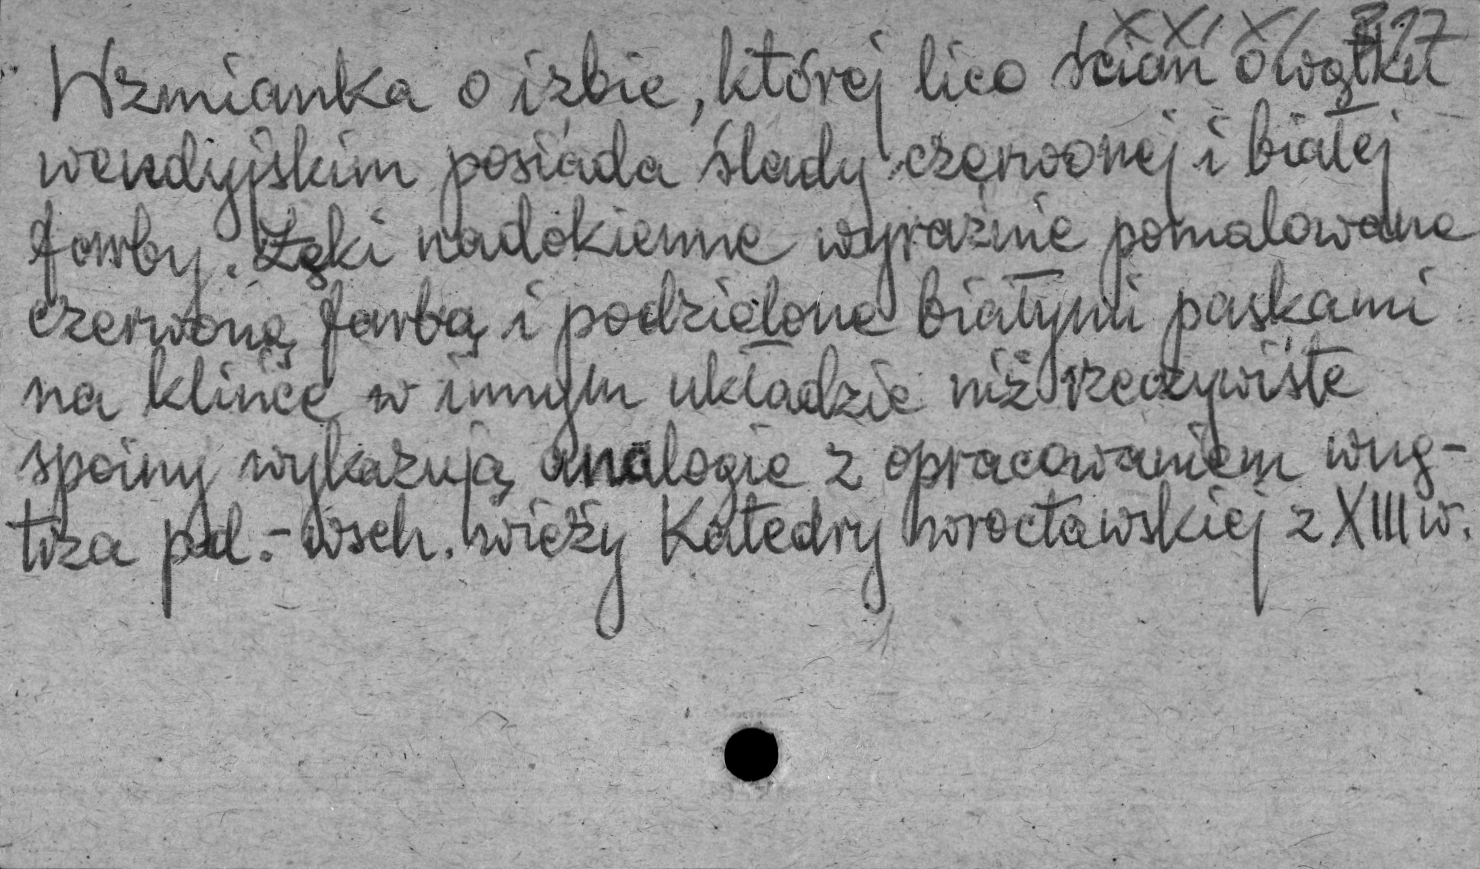 XXI X/ 317
Wzmianka o izbie, której lico ścian o wątku
wendyjskim posiada ślady czerwonej i białej
farby. Łęki nadokienne wyraźnie pomalowane
czerwoną farbą i podzielone białymi paskami
na klińce w innym układzie niż rzeczywiste
spoiny wykazują analogie z opracowaniem wnę-
trza pd.-wsch. wieży Katedry wrocławskiej z XIII w.